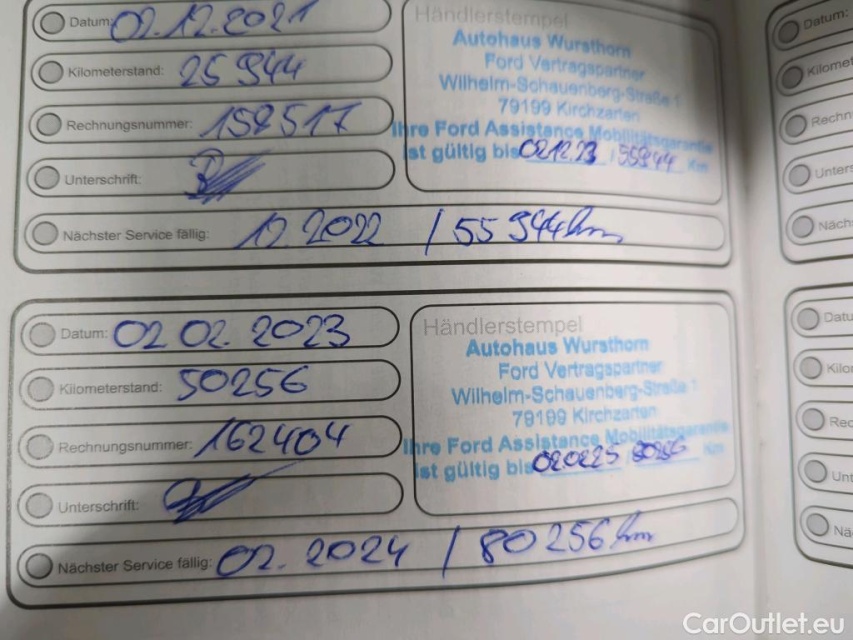 Datum: 02.12.2021
Kilometerstand: 25944
Rechnungsnummer: 158517
Unterschrift:
Nächster Service fällig: 12 2022 / 55944km
Händlerstempel
Autohaus Wursthorn
Ford Vertragspartner
Wilhelm-Schauenberg-Straße 1
79199 Kirchzarten
Ihre Ford Assistance Mobilitätsgarantie
ist gültig bis 02.12.23 / 55944 Km
Datum: 02 02. 2023
Kilometerstand: 50256
Rechnungsnummer: 162404
Unterschrift:
Nächster Service fällig: 02. 2024 / 80256 km
Händlerstempel
Autohaus Wursthorn
Ford Vertragspartner
Wilhelm-Schauenberg-Straße 1
79199 Kirchzarten
Ihre Ford Assistance Mobilitätsgarantie
ist gültig bis 020225 80256 Km
Datum:
Kilomet
Rechn
Unters
Näch
Datu
Kilo
Rec
Unt
Nä
CarOutlet.eu